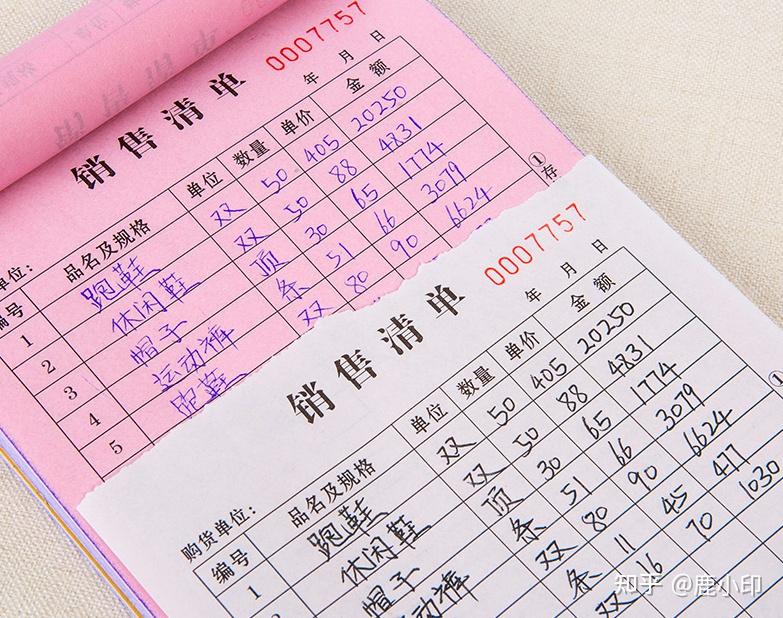 0007757
销售清单
年 月 日
单位：
编号 品名及规格 单位 数量 单价 金额
1 跑鞋 双 50 405 20250
2 休闲鞋 双 50 88 4831
3 帽子 顶 30 65 1774
4 运动裤 条 51 66 3079
5 跑鞋 双 80 90 6624
①存
0007757
销售清单
年 月 日
购货单位：
编号 品名及规格 单位 数量 单价 金额
1 跑鞋 双 50 405 20250
休闲鞋 双 50 88 4831
帽子 顶 30 65 1774
运动裤 条 51 66 3079
双 80 90 6624
条 11 45 477
双 16 70 1030
①
知乎 @鹿小印